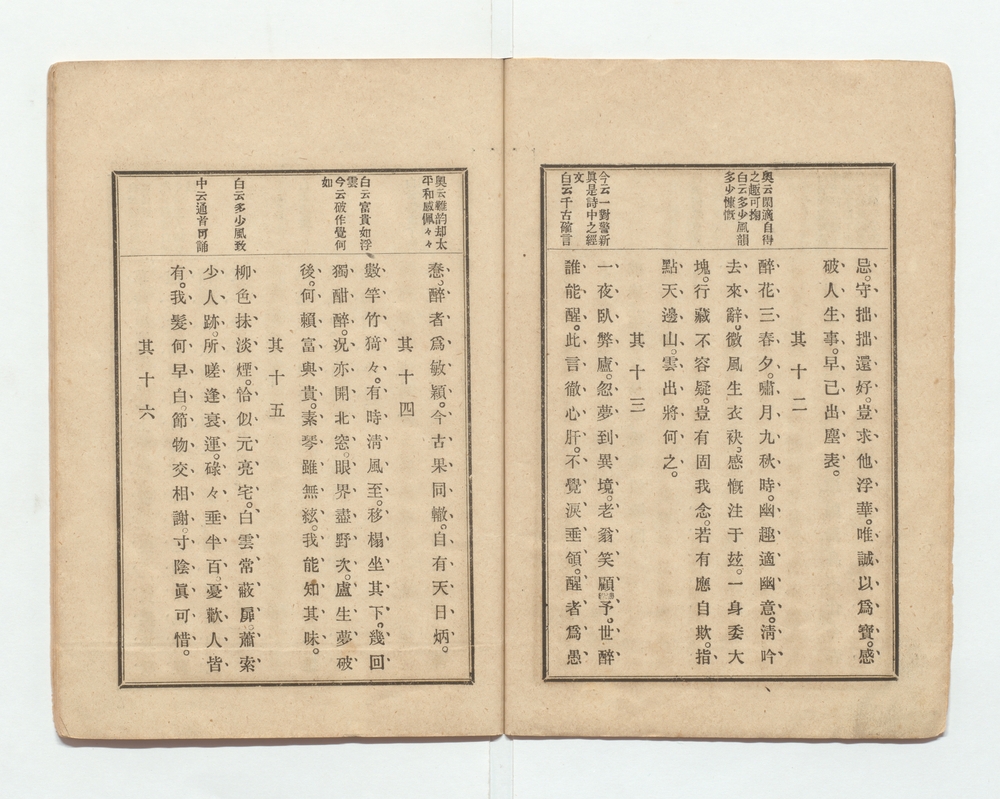 忌。守拙拙還好。豈求他浮華。唯誠以爲寶。感
破人生事。早已出塵表。
其十二
奧云閑適自得
之趣可掬
白云多少風韻
多少慷慨
醉花三春夕。嘯月九秋時。幽趣適幽意。淸吟
去來辭。微風生衣袂。感慨注于玆。一身委大
塊。行藏不容疑。豈有固我念。若有應自欺。指
點天邊山。雲出將何之。
其十三
今云一對警新
眞是詩中之經
文
白云千古確言
一夜臥弊廬。忽夢到異境。老翁笑顧予。世醉
誰能醒。此言徹心肝。不覺淚垂領。醒者爲愚
惷。醉者爲敏穎。今古果同轍。自有天日炳。
奧云難韵却太
平和感佩々々
其十四
白云富貴如浮
雲
今云破作覺何
如
數竿竹猗々。有時淸風至。移榻坐其下。幾回
獨酣醉。况亦開北窓。眼界盡野次。盧生夢破
後。何賴富與貴。素琴雖無絃。我能知其味。
其十五
白云多少風致
中云通首可誦
柳色抹淡煙。恰似元亮宅。白雲常蔽扉。蕭索
少人跡。所嗟逢衰運。碌々垂半百。憂歡人皆
有。我髮何早白。節物交相謝。寸陰眞可惜。
其十六